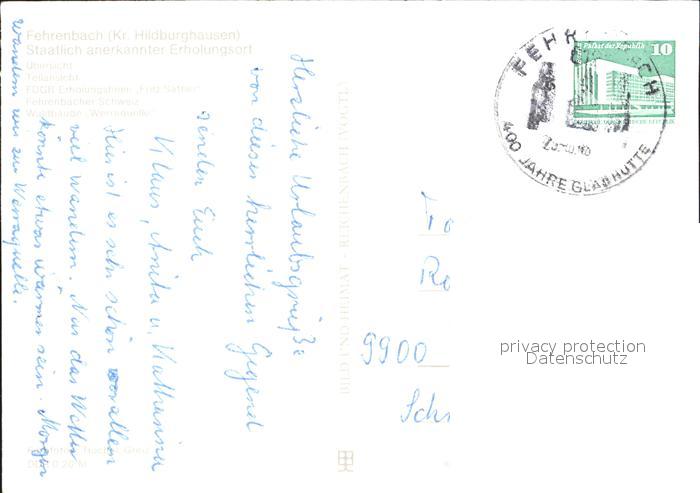 Fehrenbach (Kr. Hildburghausen)
Staatlich anerkannter Erholungsort
Übersicht
Teilansicht
FDGB Erholungsheim "Fritz Sattler"
Fehrenbacher Schweiz
Waldbaude "Werraquelle"
Herzliche Urlaubsgrüße
von dieser herrlichen Gegend
senden Euch
Klaus, Anita u. Katharina
Hier ist es sehr schön vor allem
viel wandern. Nur das Wetter
könnte etwas wärmer sein. Morgen
wandern wir zur Werraquelle.
BILD UND HEIMAT · REICHENBACH VOGTL
Palast der Republik
10
FEHRENBACH
400 JAHRE GLASHÜTTE
9900
privacy protection
Datenschutz